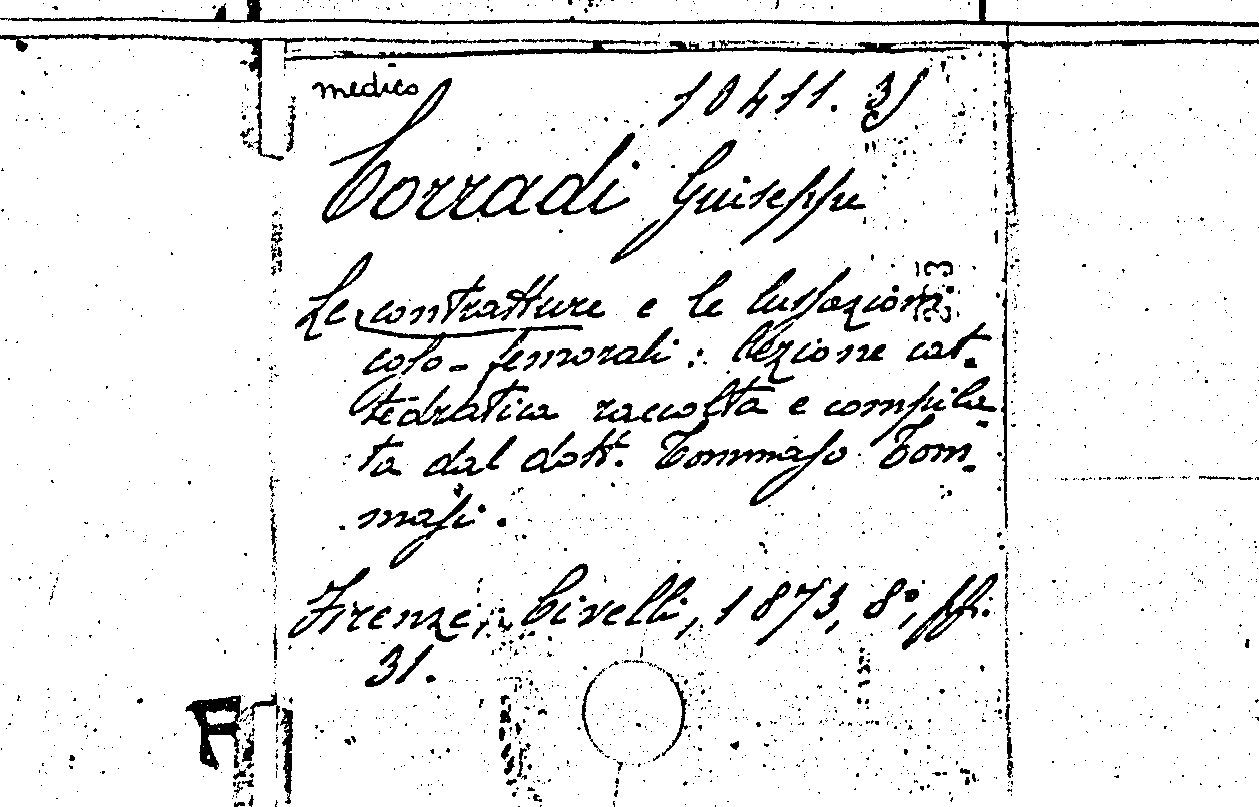 medico
10411. 31
Corradi Giuseppe
Le contratture e le lussazioni
coso-femorali: lezione cat-
tedratica raccolta e compila-
ta dal dott. Tommaso Tom-
masi.
Firenze, Civelli, 1873, 8°, pp.
31.